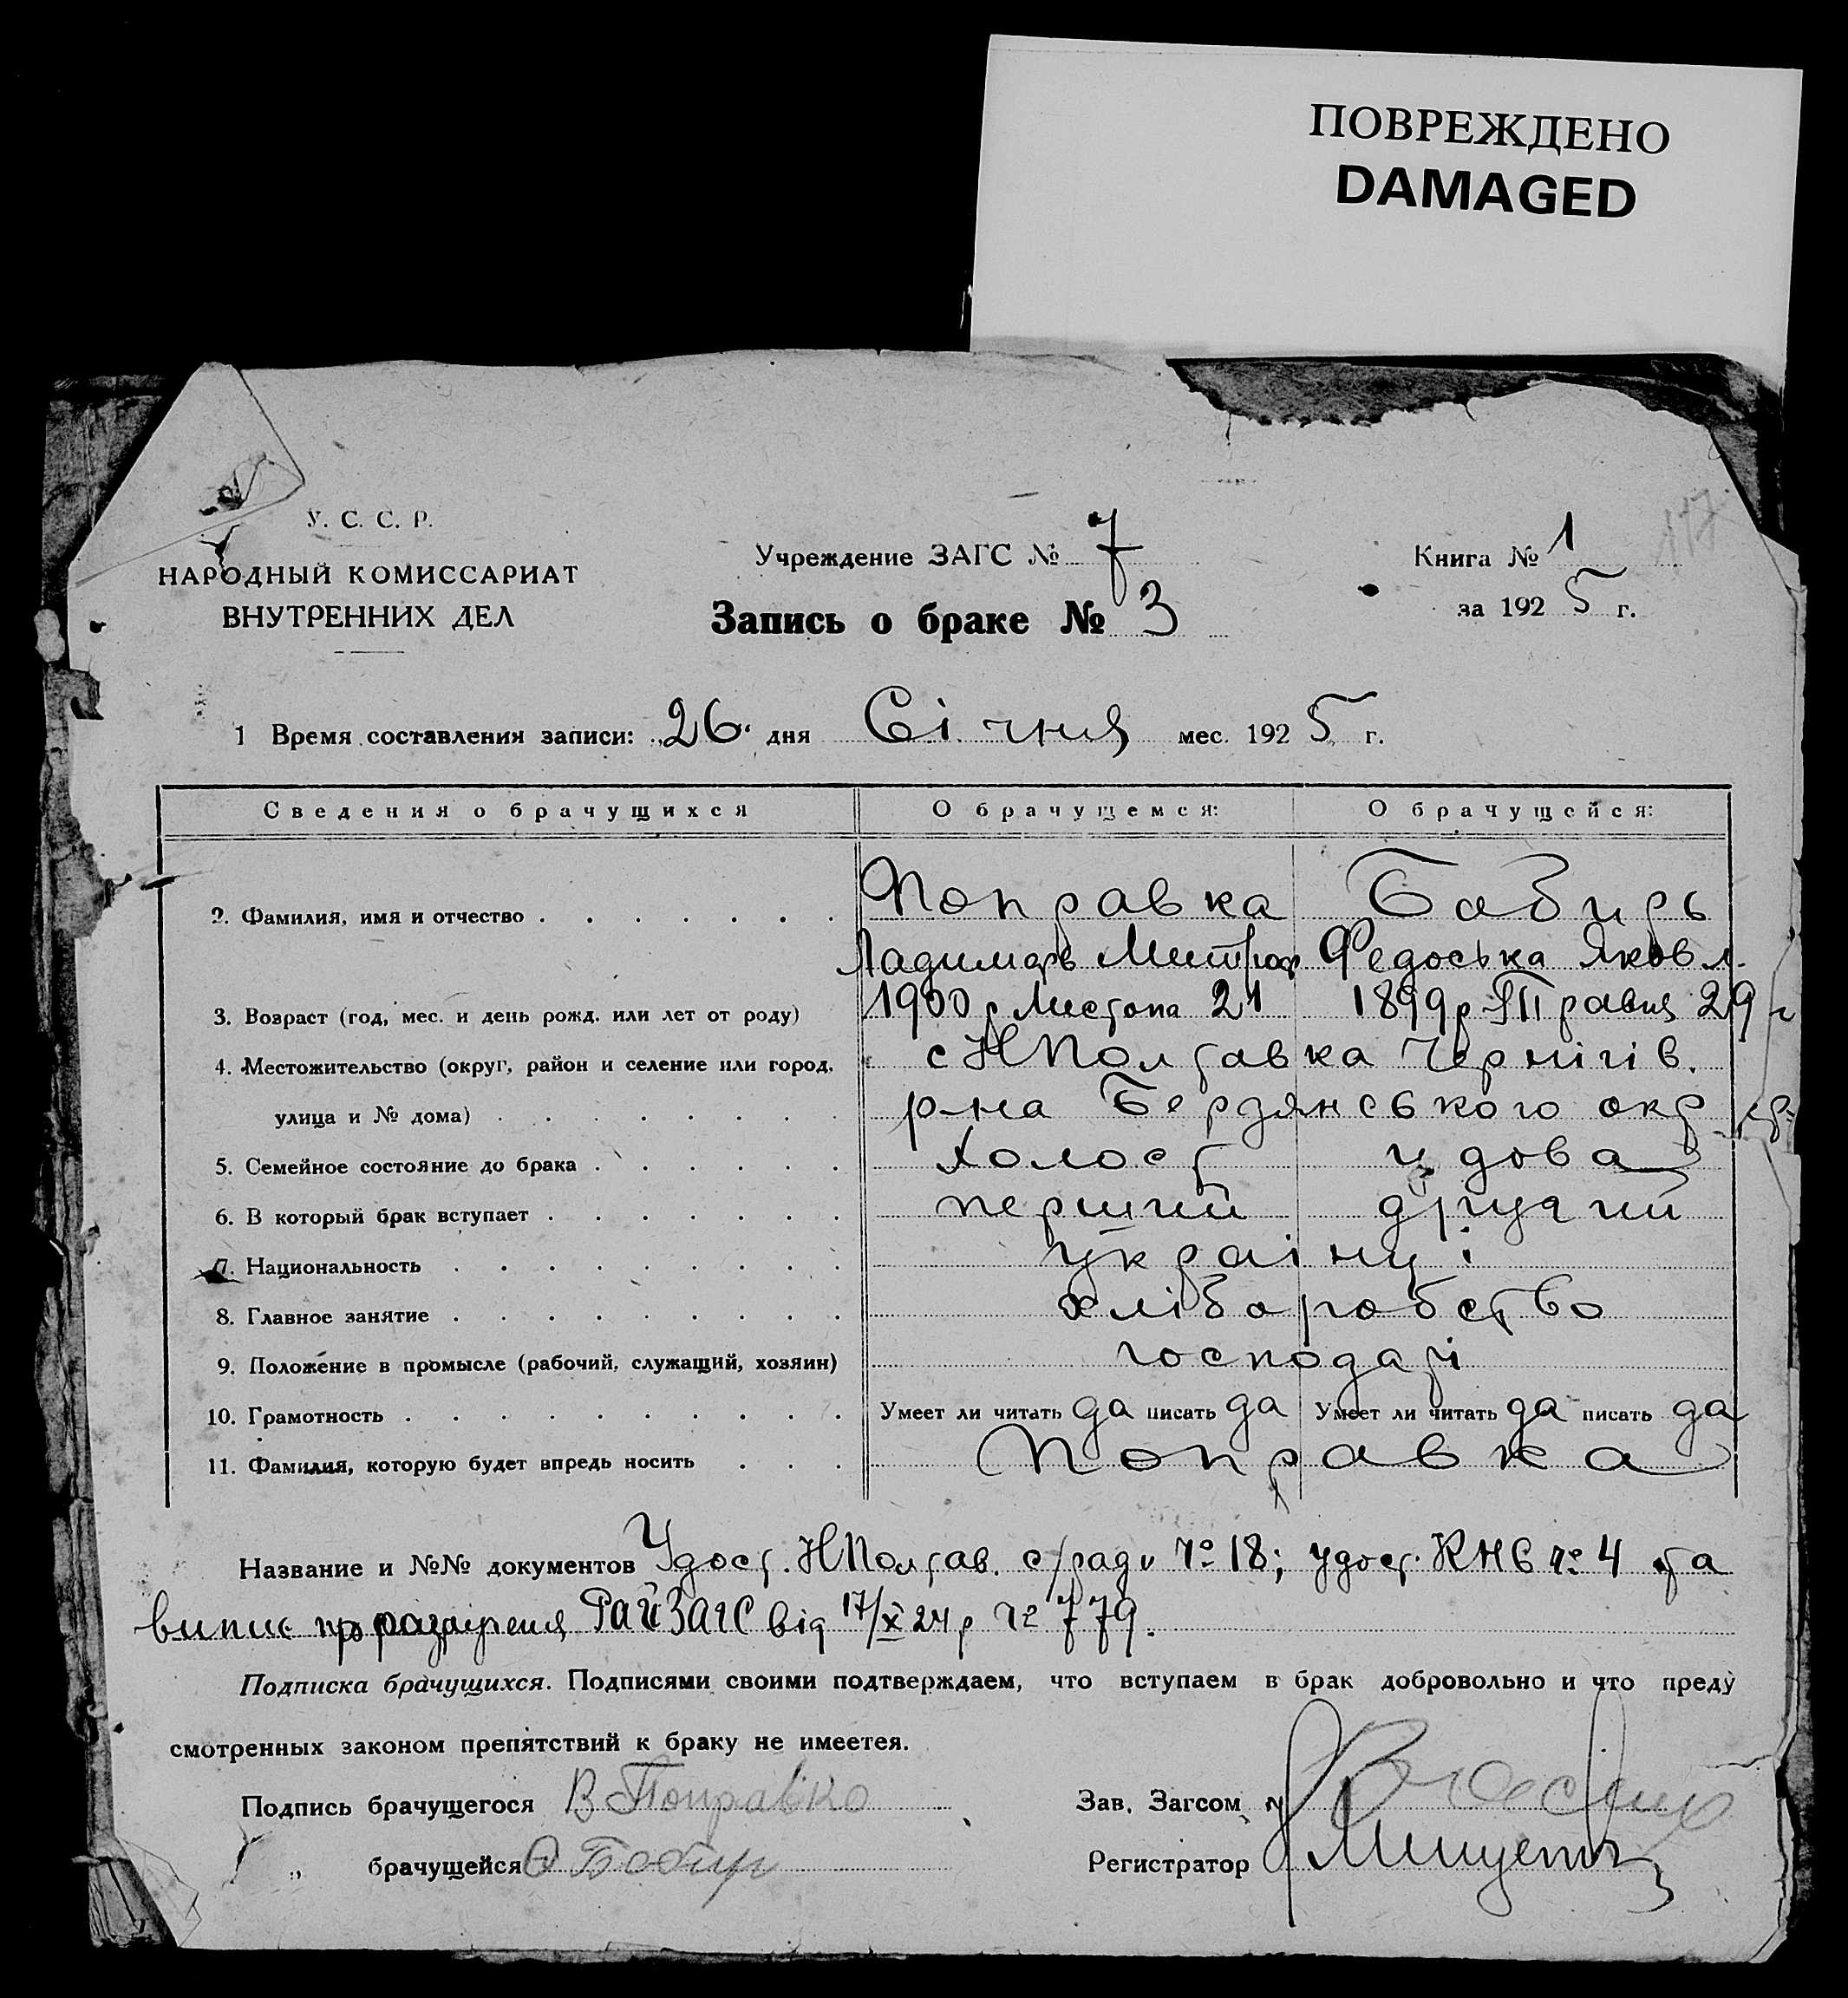 ПОВРЕЖДЕНО
DAMAGED
У. С. С. Р.
НАРОДНЫЙ КОМИССАРИАТ
ВНУТРЕННИХ ДЕЛ
Учреждение ЗАГС № 7
Запись о браке № 3
Книга № 1
117
за 1925 г.
1 Время составления записи: 26 дня Січня мес. 1925 г.
Сведения о брачущихся О брачущемся: О брачущейся:
2. Фамилия, имя и отчество Поправка Бабирь
Ладимирь Митроф Федоська Яковл.
3. Возраст (год, мес. и день рожд. или лет от роду) 1900 р Листопа 21 1899 р Травня 29
4. Местожительство (округ, район и селение или город, с НПолтавка Чернігів.
улица и № дома) р-на Бердянського окр
5. Семейное состояние до брака холост удова
6. В который брак вступает перший другий
7. Национальность українці
8. Главное занятие хліборобство
9. Положение в промысле (рабочий, служащий, хозяин) господарі
10. Грамотность Умеет ли читать да писать да Умеет ли читать да писать да
11. Фамилия, которую будет впредь носить Поправка
Название и №№ документов Удост. НПолтав. с/ради № 18; удост. КНС № 4 та
випис про РАЙЗАГС від 17/X 24 р № 779.
Подписка брачущихся. Подписями своими подтверждаем, что вступаем в брак добровольно и что преду
смотренных законом препятствий к браку не имеетея.
Подпись брачущегося В Поправко
Зав. Загсом
„ брачущейся Ѳ Бобир
Регистратор